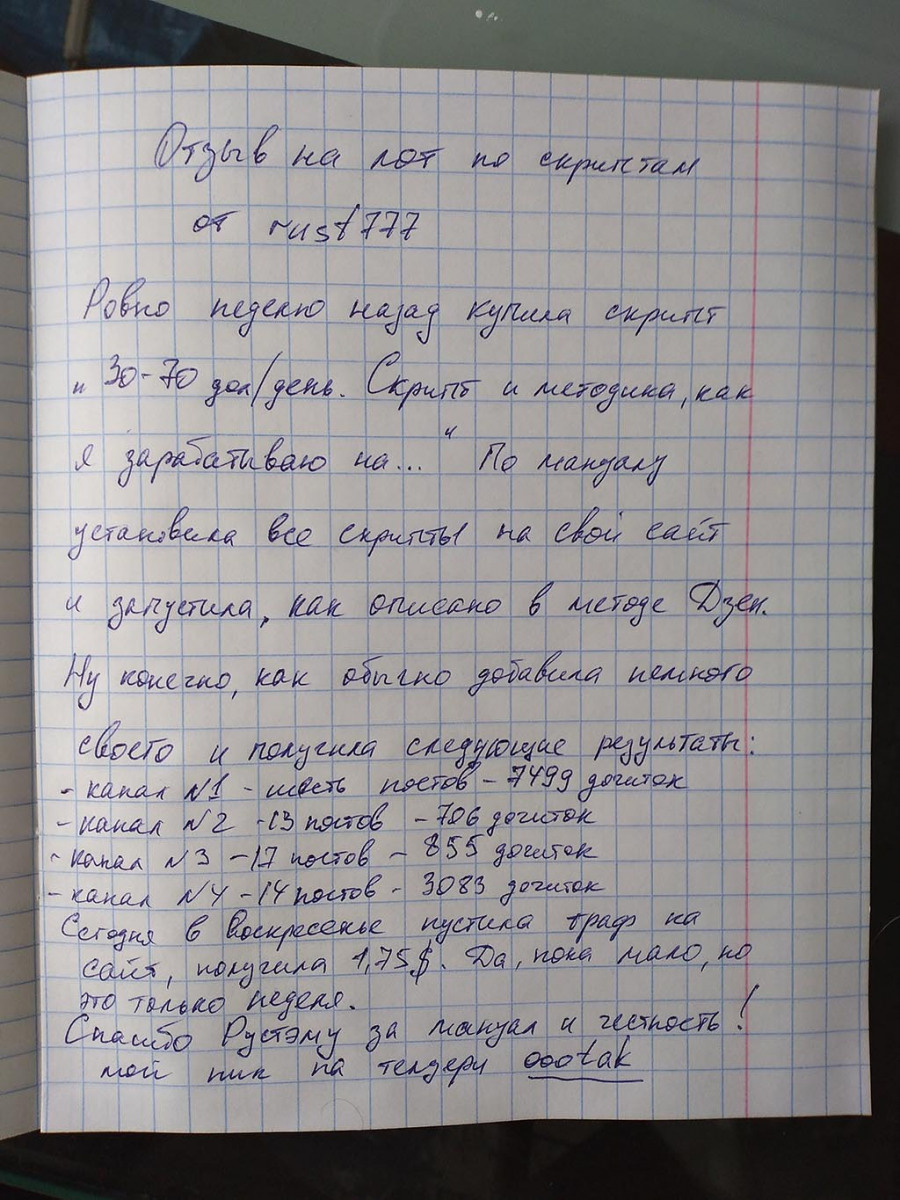 Отзыв на лот по скриптам
от rust777
Ровно неделю назад купила скрипт
"30-70 дол/день. Скрипт и методика, как
я зарабатываю на..." По мануалу
установила все скрипты на свой сайт
и запустила, как описано в методе Дзен.
Ну конечно, как обычно добавила немного
своего и получила следующие результаты:
- канал №1 - шесть постов - 7499 дочиток
- канал №2 - 13 постов - 706 дочиток
- канал №3 - 17 постов - 855 дочиток
- канал №4 - 14 постов - 3083 дочиток
Сегодня в Воскресенье пустила траф на
сайт, получила 1,75$. Да, пока мало, но
это только неделя.
Спасибо Рустэму за мануал и честность!
мой ник на телдери oootak